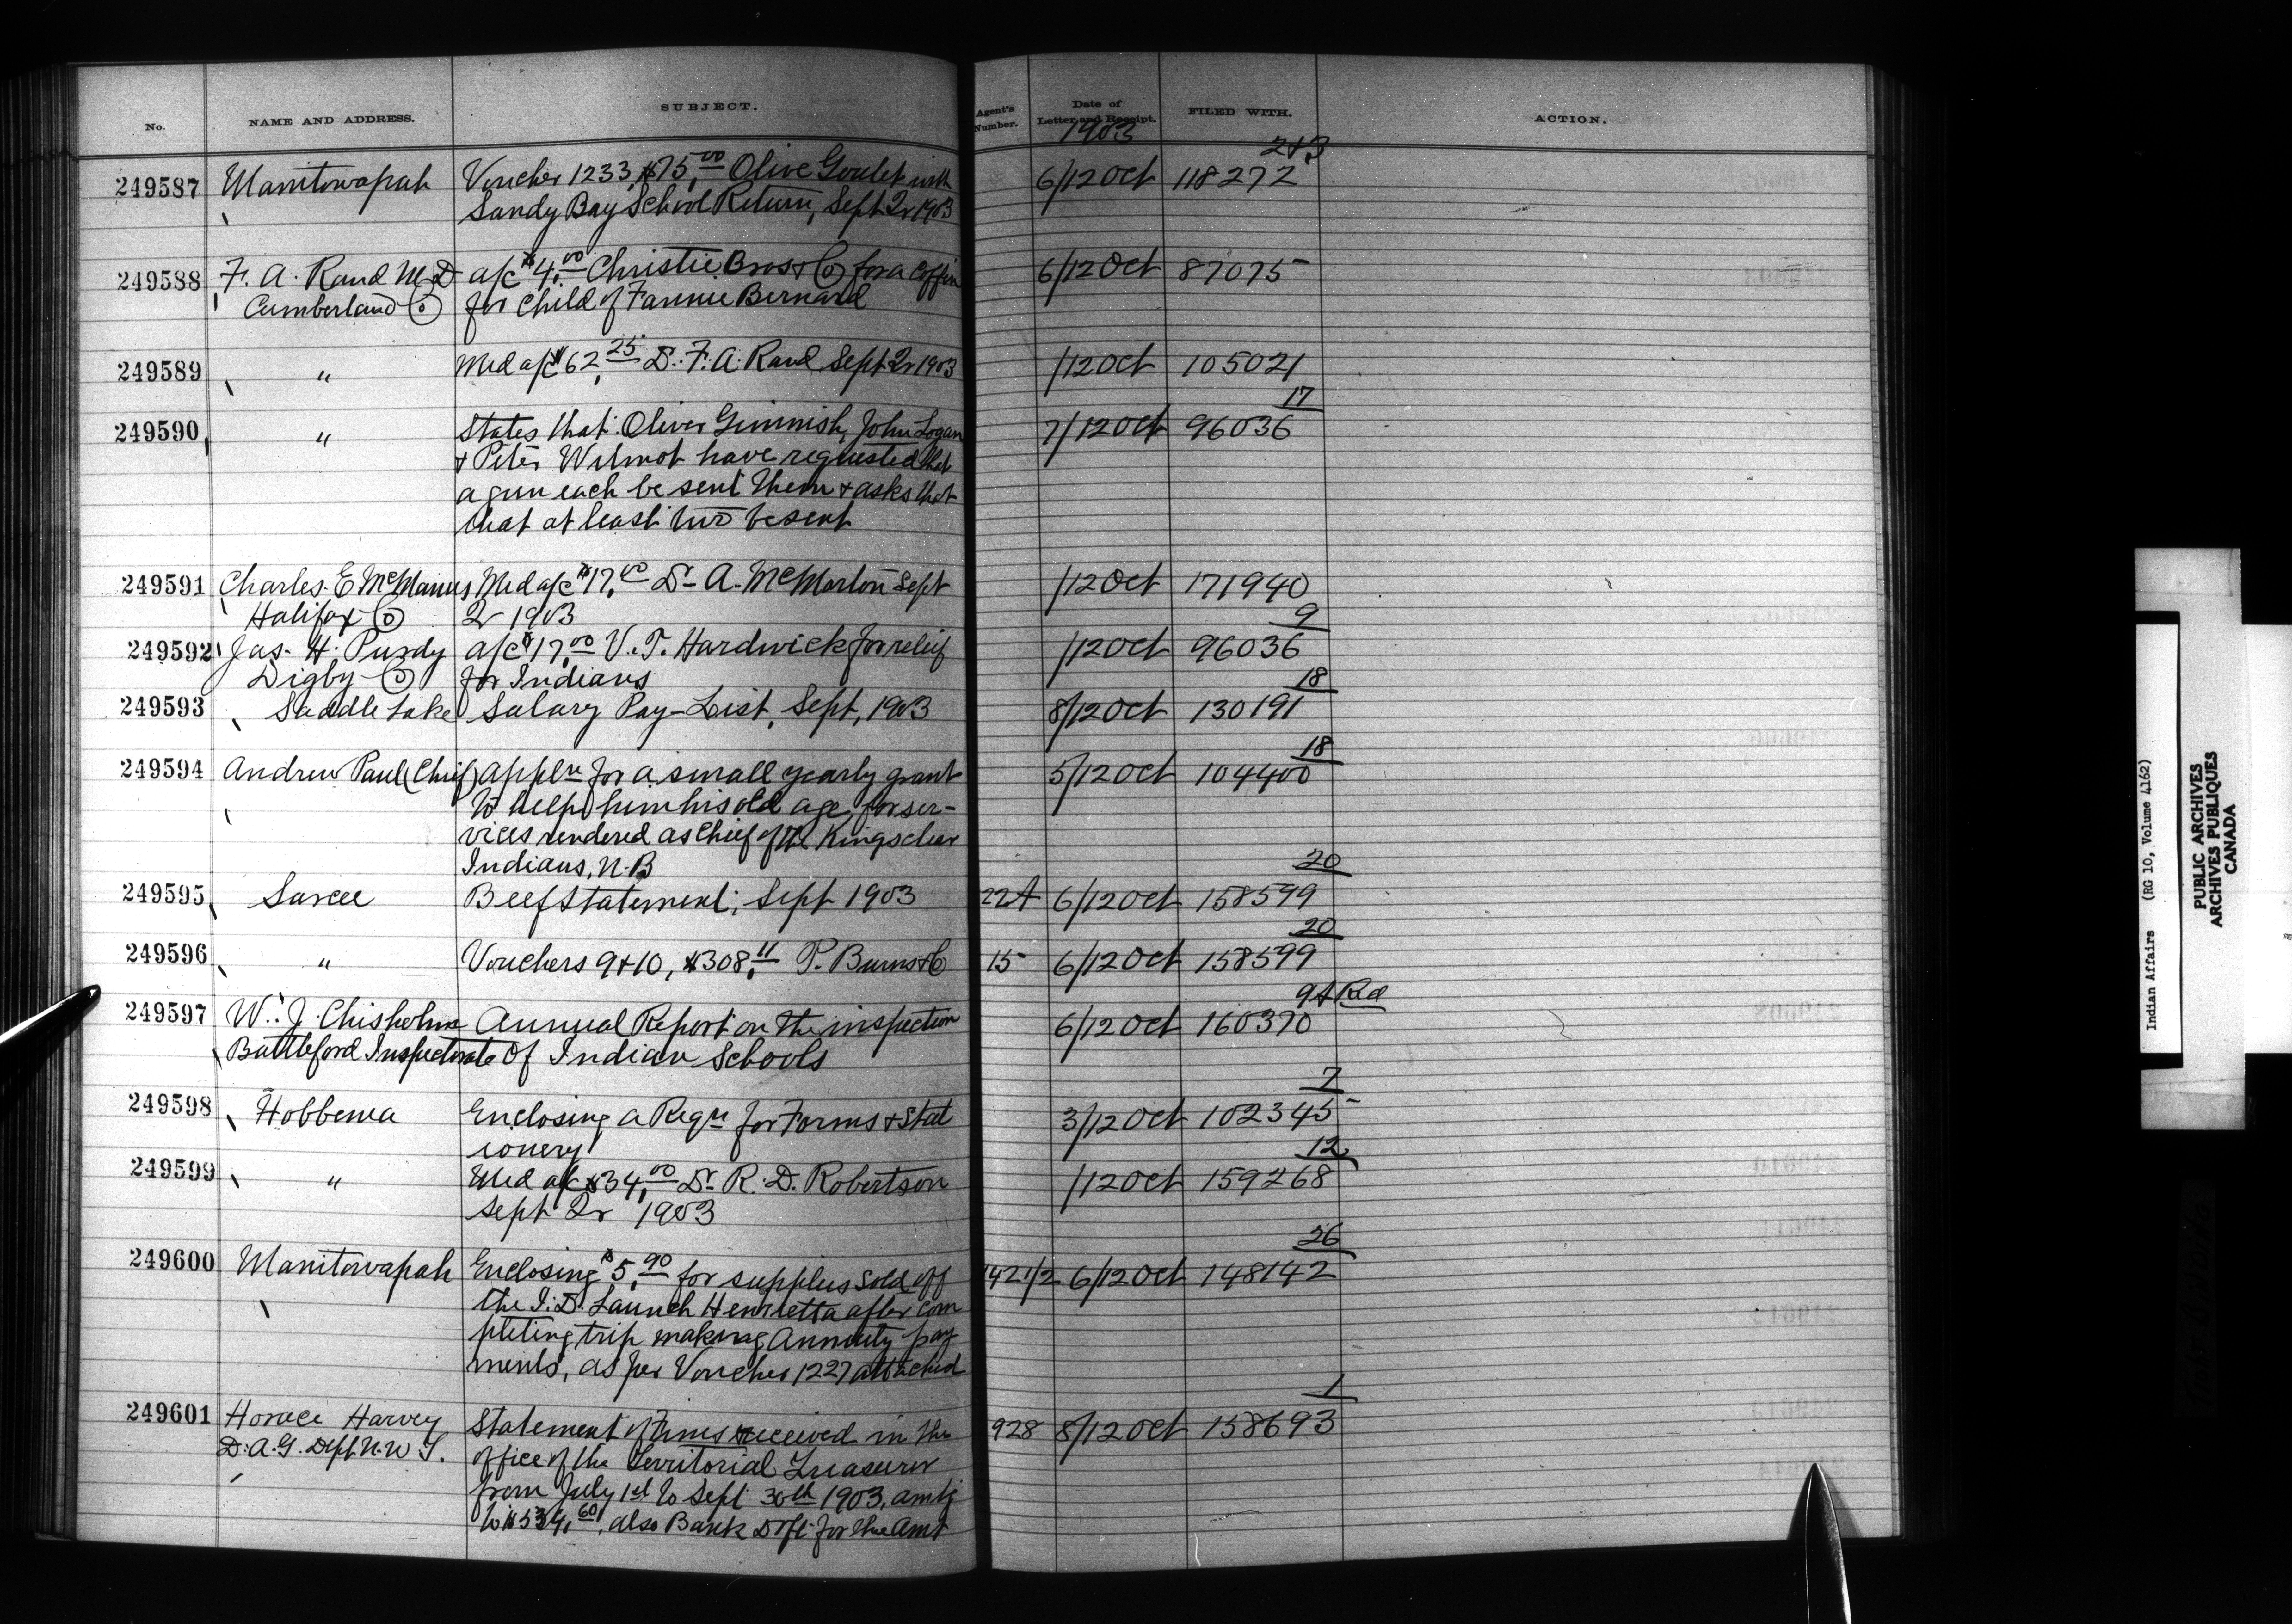 No. NAME AND ADDRESS. SUBJECT. Agent's Number. Date of Letter and Receipt. FILED WITH. ACTION.
1903
2+3
249587 Manitowapah Voucher 1233, $75.00 Olive Goulet with 6/12 Oct 118272
Sandy Bay School Return, Sept Qr 1903
249588 F. A. Rand M.D a/c $4.00 Christie Bros & Co for a coffin 6/12 Oct 87075
Cumberland Co for child of Fannie Bernard
249589 " Med a/c $62.25 Dr. F. A. Rand Sept Qr 1903 /12 Oct 105021
17
249590 " States that Oliver Gimmish, John Logan 7/12 Oct 96036
& Peter Wilmot have requested that
a gun each be sent them & asks that
that at least two be sent
249591 Charles E McManus Med a/c $17.00 Dr A. McMorton Sept /12 Oct 171940
Halifax Co Qr 1903
9
249592 Jas. H. Purdy a/c $17.00 V. T. Hardwick for relief /12 Oct 96036
Digby Co for Indians
18
249593 Saddle Lake Salary Pay-List, Sept, 1903 8/12 Oct 130191
18
249594 Andrew Paul (Chief) Appln for a small yearly grant 5/12 Oct 104400
to help him his old age, for ser-
vices rendered as Chief of the Kingsclear
Indians, N.B
20
249595 Sarcee Beef Statement; Sept 1903 22A 6/12 Oct 158599
20
249596 " Vouchers 9+10, $308.11 P. Burns & Co 15 6/12 Oct 158599
9A Rd
249597 W. J. Chisholm Annual Report on the inspection 6/12 Oct 160370
Battleford Inspectorate of Indian Schools
7
249598 Hobbema Enclosing a Reqn for Forms & Stat 3/12 Oct 102345
ionery
12
249599 " Med a/c $34.00 Dr. R. D. Robertson /12 Oct 159268
Sept Qr 1903
26
249600 Manitowapah Enclosing $5.90 for supplies sold off 1421/2 6/12 Oct 148142
the I. D. Launch Henrietta after com
pleting trip making Annuity pay
ments, as per Voucher 1227 attached
1
249601 Horace Harvey Statement of Fines received in the 928 8/12 Oct 158693
D. A. G. Dept N. W. T. office of the Territorial Treasurer
from July 1st to Sept 30th 1903, amtg
to $534.60, also Bank Dft for the Amt
Indian Affairs (RG 10, Volume 4162)
PUBLIC ARCHIVES
ARCHIVES PUBLIQUES
CANADA